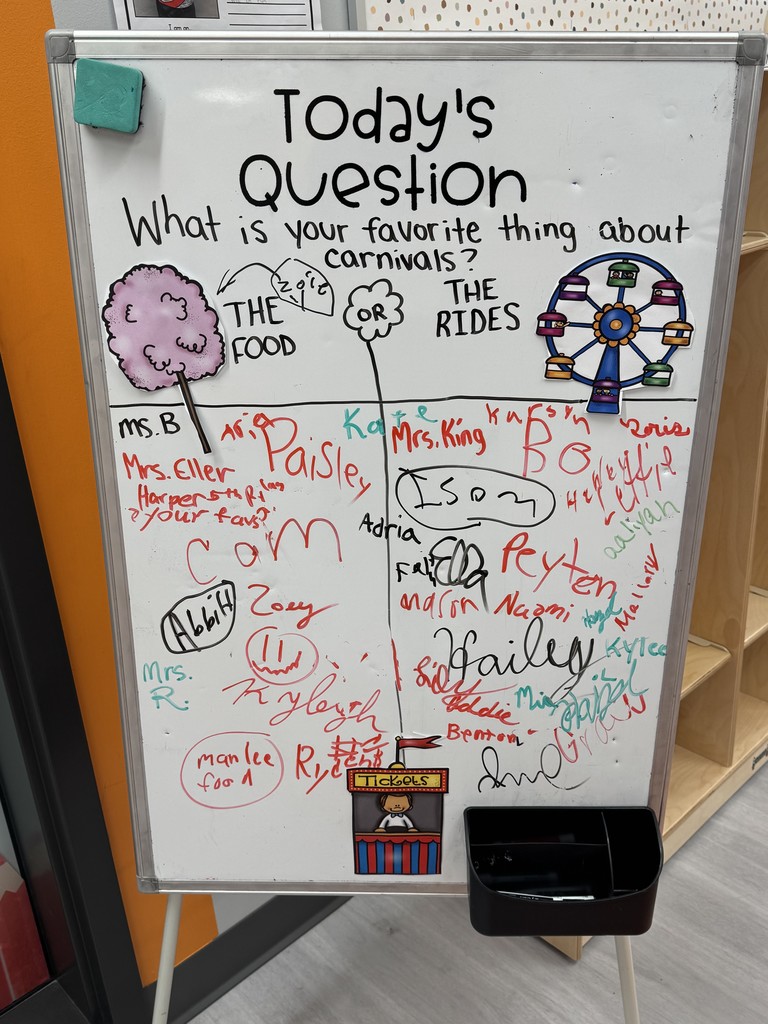 I am on
Today's
Question
What is your favorite thing about
carnivals?
Zoie
THE
FOOD
OR
THE
RIDES
Ms. B
Aria
Paisley
Mrs. Eller
Harper
? your favs?
Cam
Abbitt
Zoey
Mrs.
R.
Kyleigh
manlee
food
Kate
Mrs. King
Bo
Zoris
Ison
Adria
Ella
Peyten
aaliyah
Mallory
Mason
Naomi
Hailey
Kylee
Lidy
Eddie
Mia
Benton
Tickets